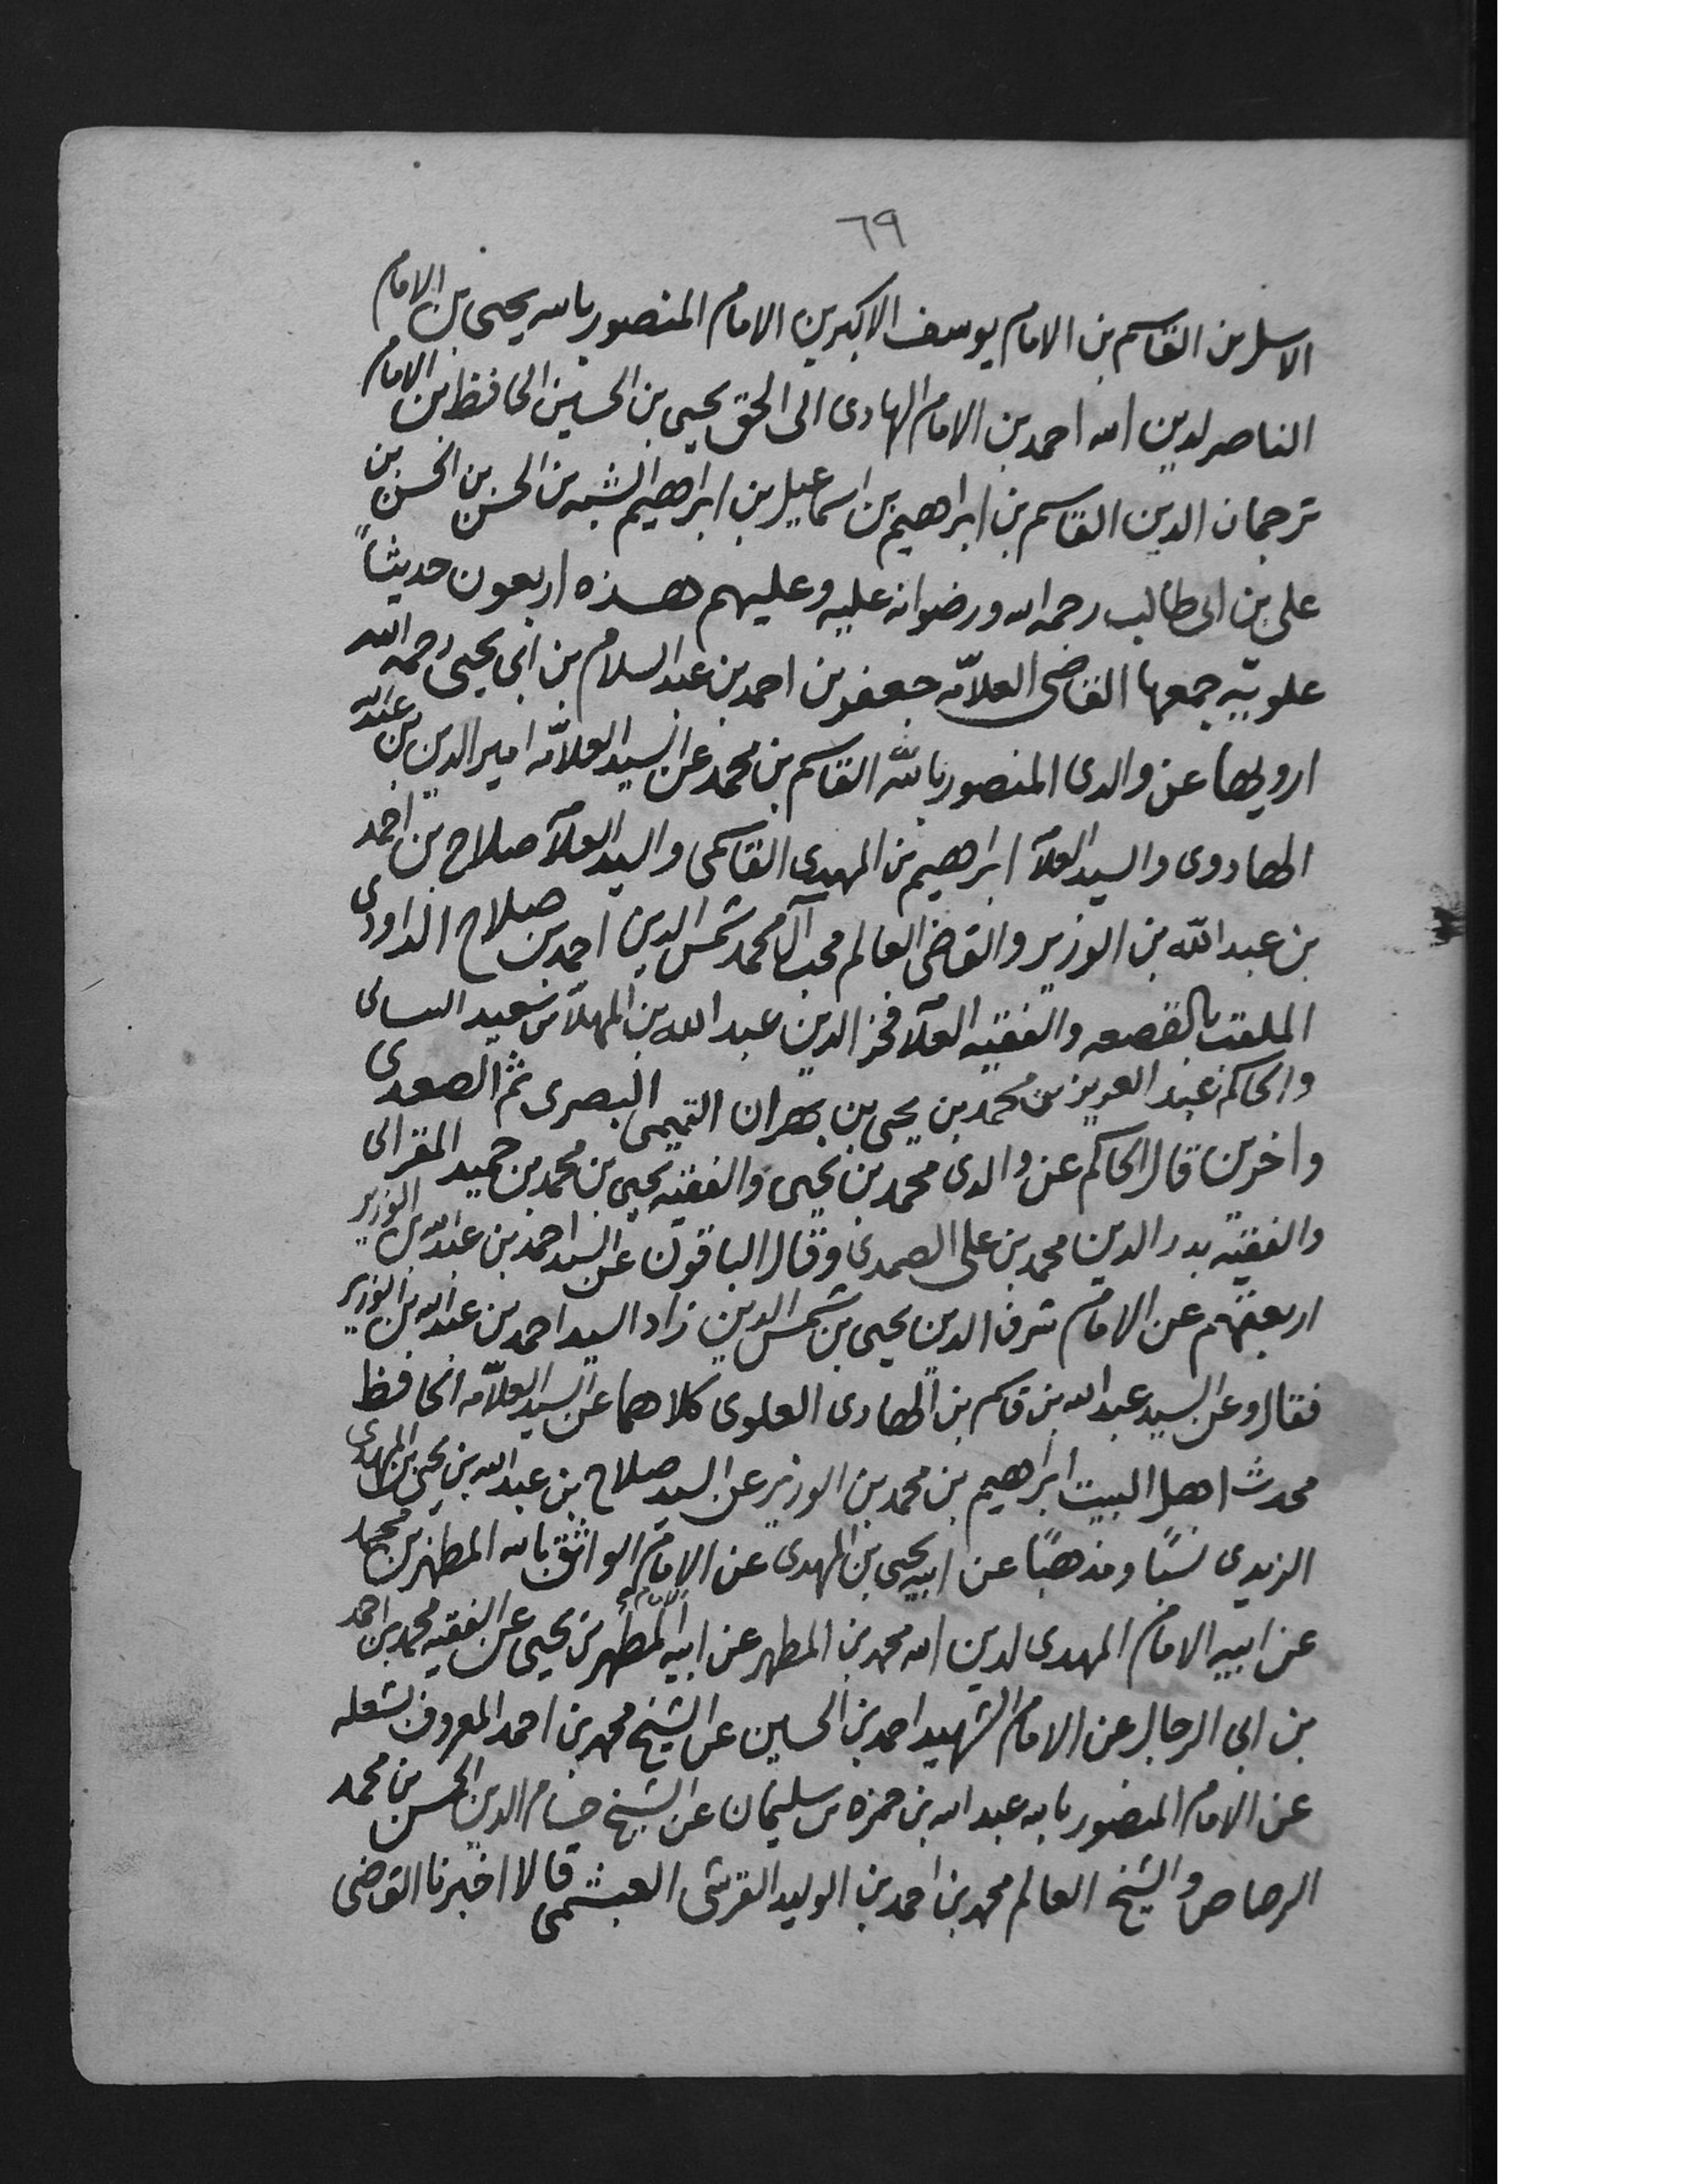 ٦٩
الاسل بن القاسم بن الامام يوسف الاكبر بن الامام المنصور بالله يحيى بن الامام
الناصر لدين الله احمد بن الامام الهادى الى الحق يحيى بن الحسين الحافظ بن الامام
ترجمان الدين القاسم بن ابراهيم بن اسماعيل بن ابراهيم الشبه بن الحسن بن الحسن بن
على بن ابى طالب رحمه الله ورضوانه عليه وعليهم هذه اربعون حديثاً
علويّه جمعها القاضى العلامّه جعفر بن احمد بن عبد السلام بن ابى يحيى رحمه الله
ارويها عن والدى المنصور بالله القاسم بن محمد عن السيد العلامّه امير الدين بن عبدالله
الهادوى والسيد العلآ ابراهيم بن المهدى القاسمى والسيد العلآ صلاح بن احمد
بن عبد الله بن الوزير والقاضى العالم محب آل محمد شمس الدين احمد بن صلاح الداودى
الملقب بالقصعه والفقيه العلآ فخر الدين عبد الله بن المهلا بن سعيد
والحاكم عبد العزيز بن محمد بن يحيى بن بهران التميمى البصرى ثم الصعدى
واخرين قال الحاكم عن والدى محمد بن يحيى والفقيه يحيى بن محمد بن حميد المقرائى
والفقيه بدر الدين محمد بن على الصمدى وقال الباقون عن السيد احمد بن عبدالله بن الوزير
اربعتهم عن الامام شرف الدين يحيى بن شمس الدين زاد السيد احمد بن عبدالله بن الوزير
فقال وعن السيد عبد الله بن قاسم بن الهادى العلوى كلاهما عن السيد العلامّه الحافظ
محدث اهل البيت ابراهيم بن محمد بن الوزير عن السيد صلاح بن عبد الله بن يحيى بن المهدى
الزيدى نسبًا ومذهبًا عن ابيه يحيى بن المهدى عن الامام الواثق بالله المطهر بن محمد
عن ابيه الامام المهدى لدين الله محمد بن المطهر عن ابيه المطهر بن يحيى عن الفقيه محمد بن احمد
بن ابى الرجال عن الامام الشهيد احمد بن الحسين عن الشيخ محمد بن احمد المعروف بشعله
عن الامام المنصور بالله عبد الله بن حمزه بن سليمان عن الشيخ حسام الدين الحسن بن محمد
الرصاص والشيخ العالم محمد بن احمد بن الوليد القرشى العبشمى قالا اخبرنا القاضى